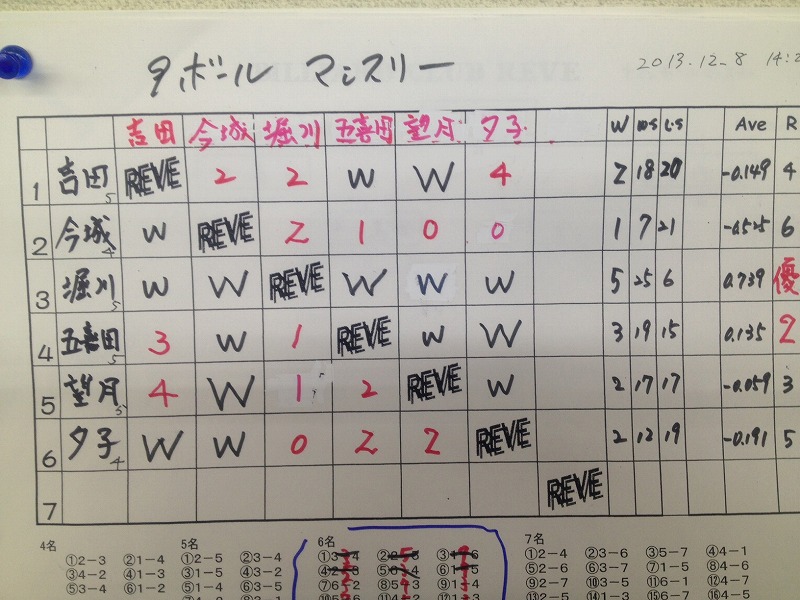 9ボール マンスリー 2013.12-8
吉田 今城 堀川 五喜田 望月 夕子 W W.S L.S Ave R
1 吉田5 REVE 2 2 W W 4 2 18 20 -0.149 4
2 今城4 W REVE 2 1 0 0 1 7 21 6
3 堀川5 W W REVE W W W 5 25 6 0.739 優
4 五喜田5 3 W 1 REVE W W 3 19 15 0.135 2
5 望月5 4 W 1 2 REVE W 2 17 17 -0.059 3
6 夕子4 W W 0 2 2 REVE 2 12 19 -0.191 5
7 REVE
4名 5名 6名 7名
①2-3 ②1-4 ①2-5 ②3-4 ①2-4 ②3-6 ③5-7 ④4-1
③4-2 ④1-3 ③1-5 ④3-2 ⑤2-6 ⑥3-7 ⑦1-5 ⑧4-6
⑤3-4 ⑥1-2 ⑤1-4 ⑥3-5 ⑦6-2 ⑧5-3 ⑨1-4 ⑨2-7 ⑩3-5 ⑪6-1 ⑫4-7